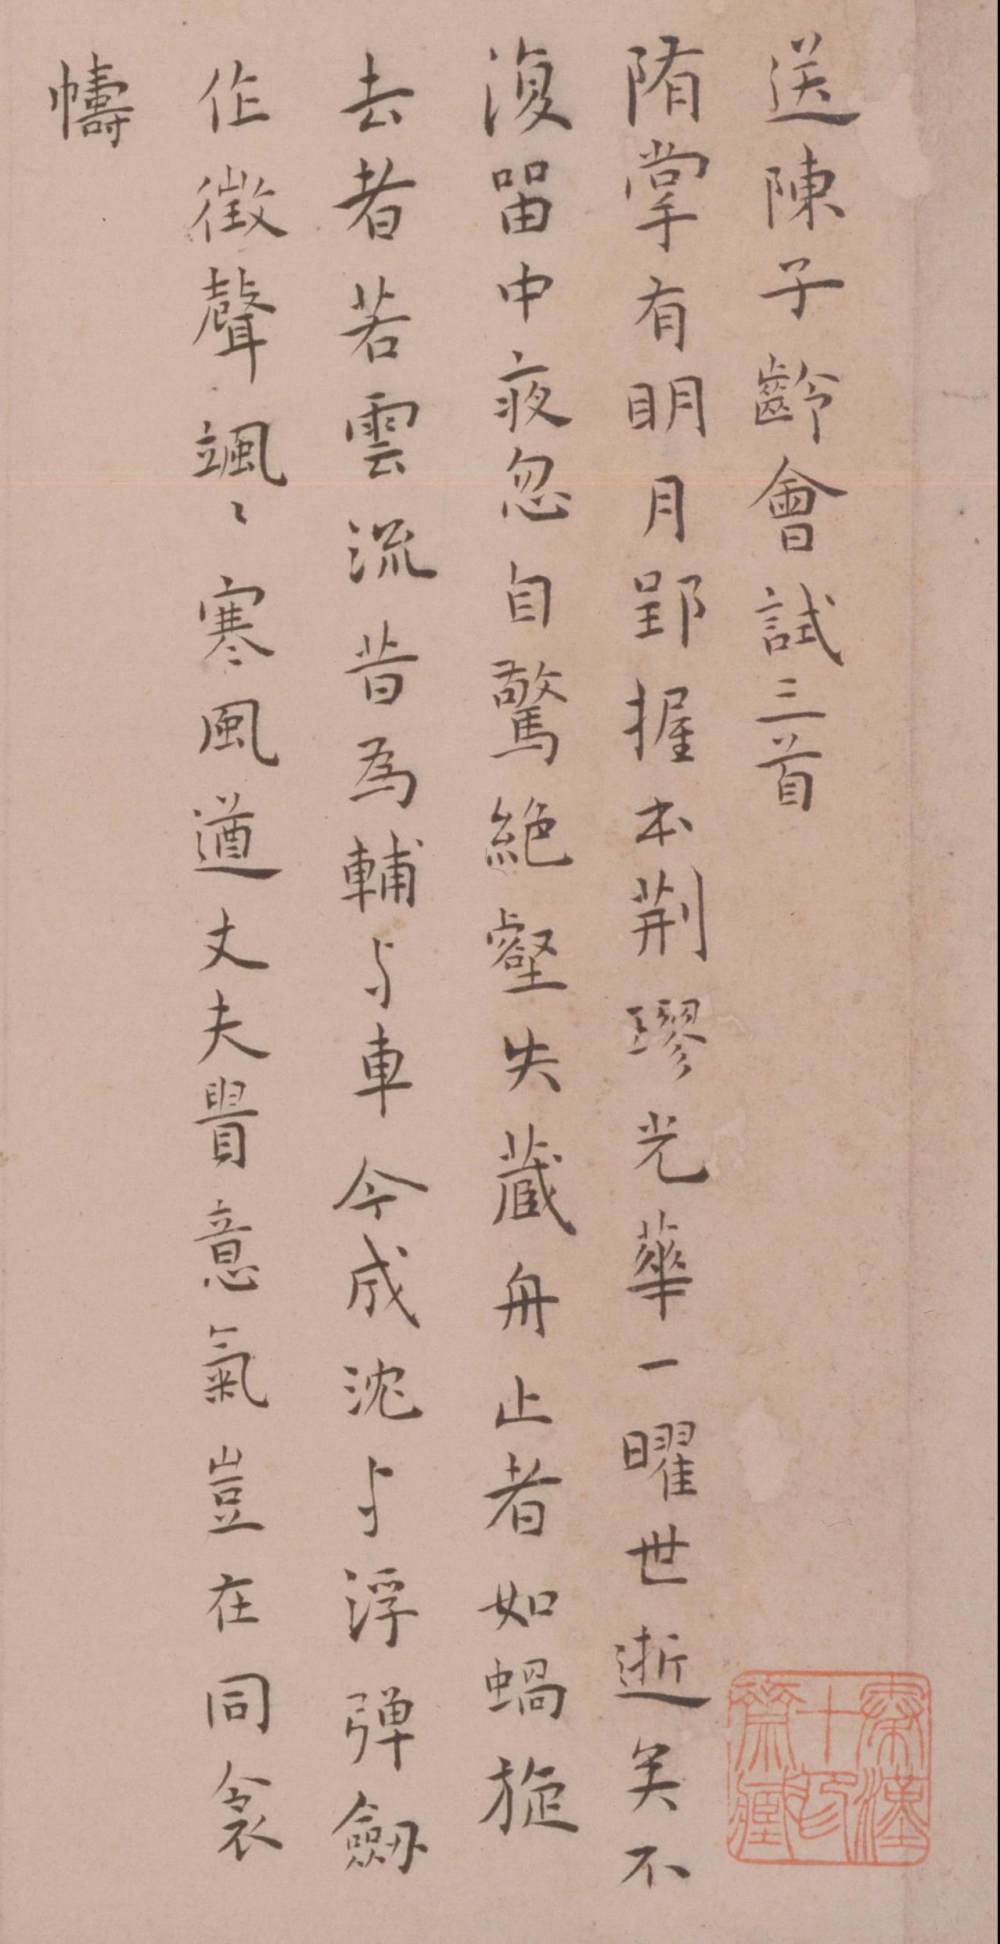 送陳子齡會試三首
陏掌有眀月郢握本荆璆光華一曜世逝矣不
復留中夜忽自驚絕壑失藏舟止者如蝸旋
去者若雲流昔為輔与車今成沈与浮彈劒
作徵聲颯〻寒風遒丈夫貴意氣豈在同衾
幬
秦漢十印齋藏